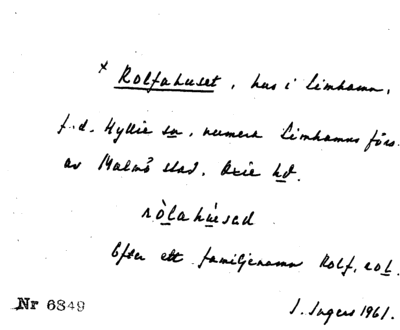 x Rolfahuset, hus i Limhamn,
f.d. Hyllie sn, numera Limhamns förs.
av Malmö stad, Oxie hd.
ròlahúesad
Efter ett familjenamn Rolf, rol.
Nr 6849
I. Ingers 1961.